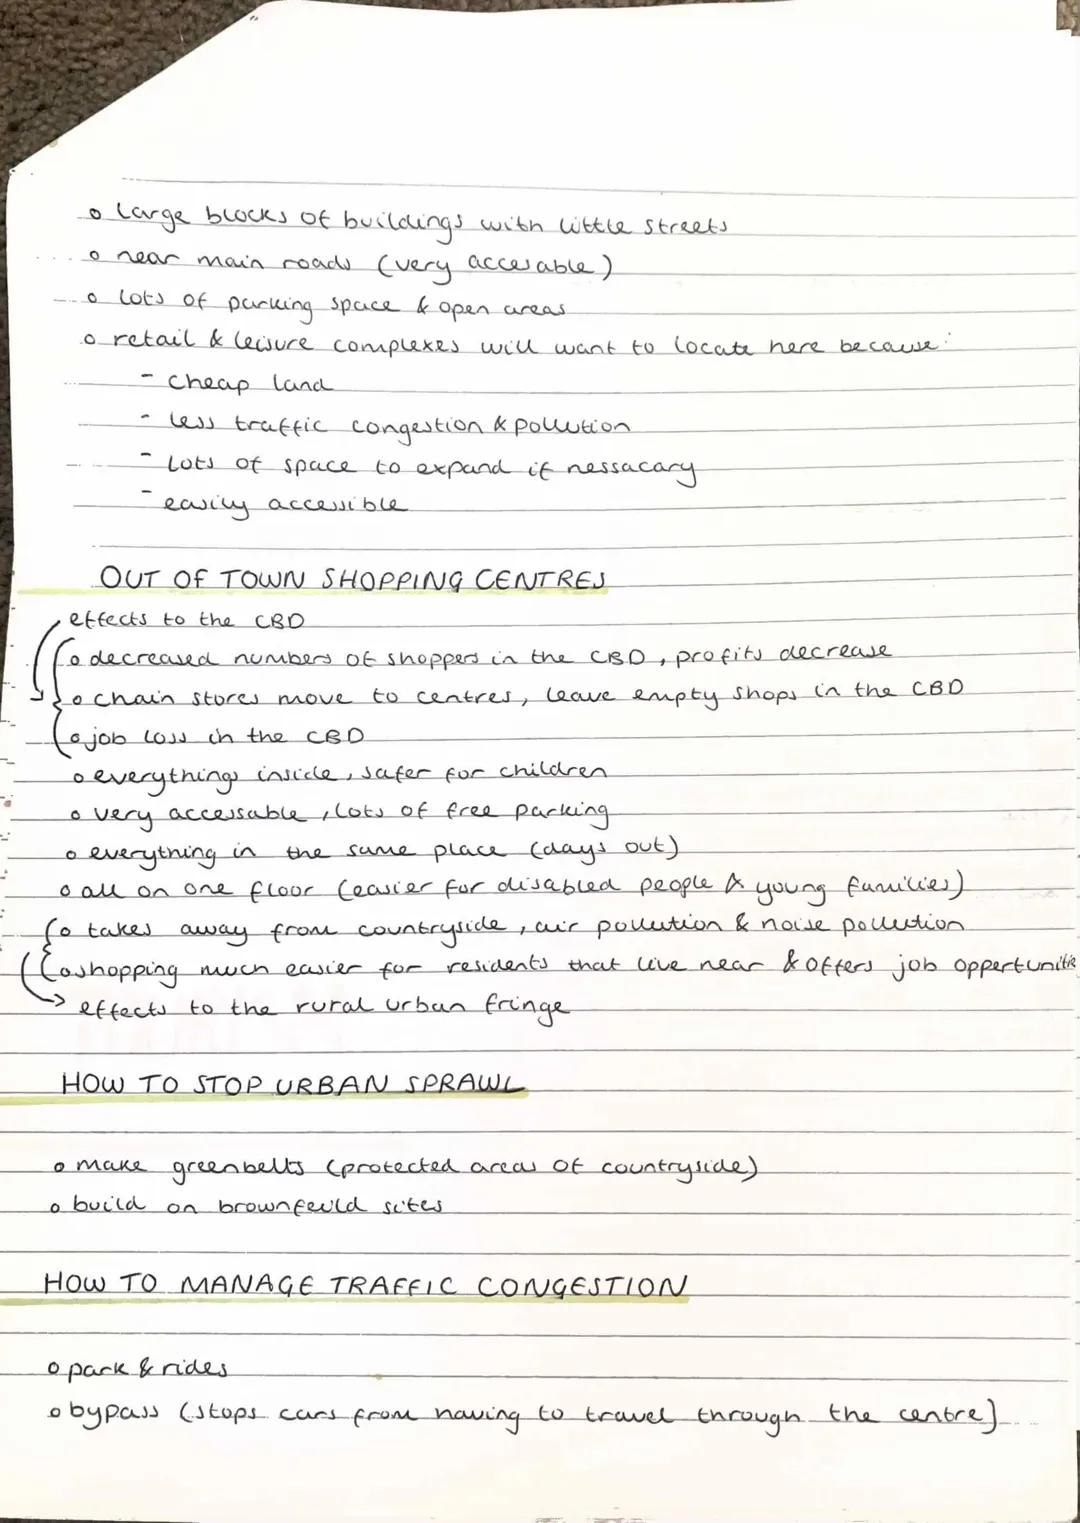 o large blocks of buildings with little streets
o near main roads (very accesable)
o lots of parking space & open areas
o retail & leisure complexes will want to locate here because:
- cheap land
- less traffic congestion & pollution
- lots of space to expand if nessacary
- easily accessible
OUT OF TOWN SHOPPING CENTRES
effects to the CBD
o decreased numbers of shoppers in the CBD, profits decrease
o chain stores move to centres, leave empty shops in the CBD
o job loss in the CBD
o everythings inside, safer for children
o very accessable, lots of free parking
o everything in the same place (days out)
o all on one floor (easier for disabled people & young families)
o takes away from countryside, air pollution & noise pollution
o shopping much easier for residents that live near & offers job oppertunitie
→ effects to the rural urban fringe
HOW TO STOP URBAN SPRAWL
o make greenbelts (protected areas of countryside)
o build on brownfeild sites
HOW TO MANAGE TRAFFIC CONGESTION
o park & rides
o bypass (stops cars from having to travel through the centre)